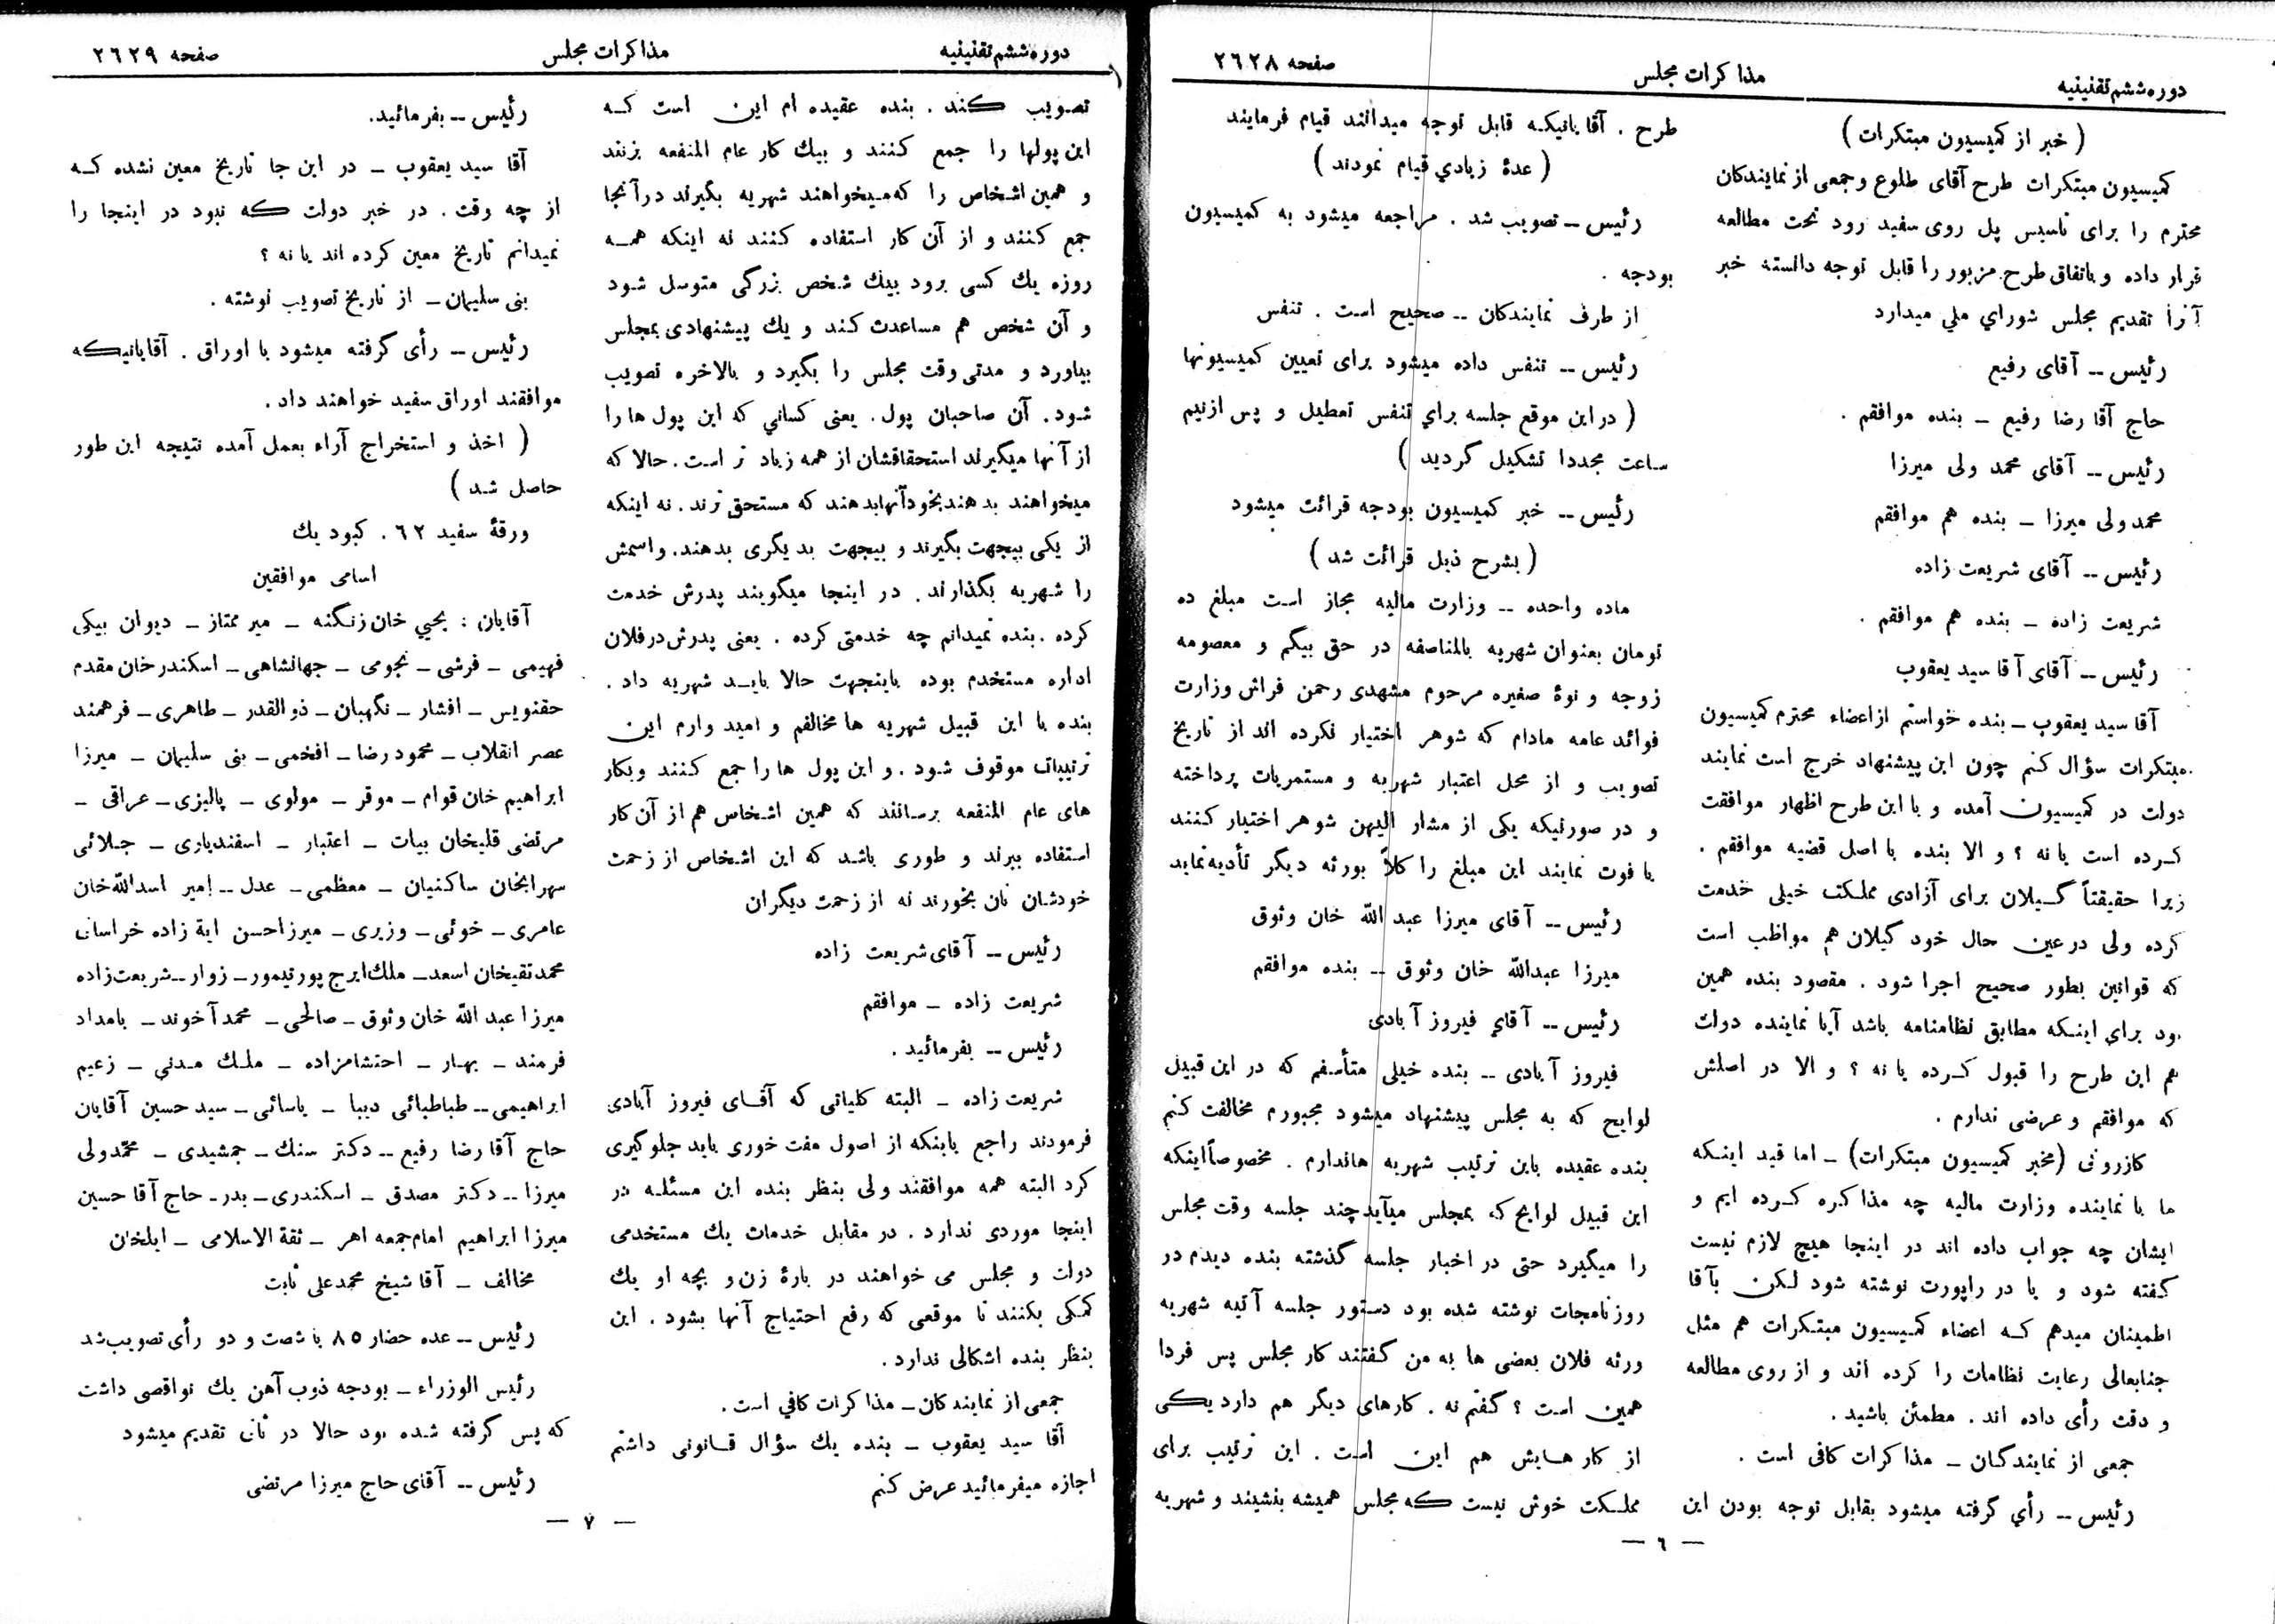 دوره ششم تقنینیه
مذاکرات مجلس
صفحه ٢٦٢٨
( خبر از کمیسیون مبتکرات )
کمیسیون مبتکرات طرح آقای طلوع و جمعی از نمایندکان
محترم را برای تاسیس پل روی سفید رود تحت مطالعه
قرار داده و باتفاق طرح مزبور را قابل توجه دانسته خبر
آنرا تقدیم مجلس شورای ملی میدارد
رئیس -- آقای رفیع
حاج آقا رضا رفیع - بنده موافقم .
رئیس -- آقای محمد ولی میرزا
محمد ولی میرزا - بنده هم موافقم
رئیس -- آقای شریعت زاده
شریعت زاده - بنده هم موافقم .
رئیس -- آقای آقا سید یعقوب
آقا سید یعقوب - بنده خواستم از اعضاء محترم کمیسیون
مبتکرات سؤال کنم چون این پیشنهاد خرج است نمایند
دولت در کمیسیون آمده و با این طرح اظهار موافقت
کرده است یا نه ؟ و الا بنده با اصل قضیه موافقم .
زیرا حقیقتاً گیلان برای آزادی مملکت خیلی خدمت
کرده ولی در عین حال خود گیلان هم مواظب است
که قوانین بطور صحیح اجرا شود . مقصود بنده همین
بود برای اینکه مطابق نظامنامه باشد آیا نماینده دولت
هم این طرح را قبول کرده یا نه ؟ و الا در اصلش
که موافقم و عرضی ندارم .
کازرونی (مخبر کمیسیون مبتکرات) - اما قید اینکه
ما با نماینده وزارت مالیه چه مذاکره کرده ایم و
ایشان چه جواب داده اند در اینجا هیچ لازم نیست
گفته شود و یا در راپورت نوشته شود لکن بآقا
اطمینان میدهم که اعضاء کمیسیون مبتکرات هم مثل
جنابعالی رعایت نظامات را کرده اند و از روی مطالعه
و دقت رأی داده اند . مطمئن باشید .
جمعی از نمایندگان - مذاکرات کافی است .
رئیس -- رأی گرفته میشود بقابل توجه بودن این
طرح . آقایانیکه قابل توجه میدانند قیام فرمایند
( عدهٔ زیادی قیام نمودند )
رئیس - تصویب شد . مراجعه میشود به کمیسیون
بودجه .
از طرف نمایندکان -- صحیح است . تنفس
رئیس -- تنفس داده میشود برای تعیین کمیسیونها
( در این موقع جلسه برای تنفس تعطیل و پس از نیم
ساعت مجددا تشکیل گردید )
رئیس -- خبر کمیسیون بودجه قرائت میشود
( بشرح ذیل قرائت شد )
ماده واحده -- وزارت مالیه مجاز است مبلغ ده
تومان بعنوان شهریه بالمناصفه در حق بیگم و معصومه
زوجه و نوهٔ صغیره مرحوم مشهدی رحمن فراش وزارت
فوائد عامه مادام که شوهر اختیار نکرده اند از تاریخ
تصویب و از محل اعتبار شهریه و مستمریات پرداخته
و در صورتیکه یکی از مشار الیهن شوهر اختیار کنند
یا فوت نمایند این مبلغ را کلاً بورثه دیگر تأدیه نماید
رئیس -- آقای میرزا عبد الله خان وثوق
میرزا عبدالله خان وثوق -- بنده موافقم
رئیس -- آقای فیروز آبادی
فیروز آبادی -- بنده خیلی متأسفم که در این قبیل
لوایح که به مجلس پیشنهاد میشود مجبورم مخالفت کنم
بنده عقیده باین ترتیب شهریه ها ندارم . مخصوصاً اینکه
این قبیل لوایح که بمجلس میآید چند جلسه وقت مجلس
را میگیرد حتی در اخبار جلسه گذشته بنده دیدم در
روزنامجات نوشته شده بود دستور جلسه آتیه شهریه
ورثه فلان بعضی ها به من گفتند کار مجلس پس فردا
همین است ؟ گفتم نه . کارهای دیگر هم دارد یکی
از کار هایش هم این است . این ترتیب برای
مملکت خوش نیست که مجلس همیشه بنشیند و شهریه
— ٦ —
دوره ششم تقنینیه
مذاکرات مجلس
صفحه ٢٦٢٩
تصویب کند . بنده عقیده ام این است که
این پولها را جمع کنند و بیک کار عام المنفعه بزنند
و همین اشخاص را که میخواهند شهریه بگیرند در آنجا
جمع کنند و از آن کار استفاده کنند نه اینکه همه
روزه یك کسی برود بیك شخص بزرگی متوسل شود
و آن شخص هم مساعدت کند و یك پیشنهادی بمجلس
بیاورد و مدتی وقت مجلس را بگیرد و بالاخره تصویب
شود . آن صاحبان پول . یعنی کسانی که این پول ها را
از آنها میگیرند استحقاقشان از همه زیاد تر است . حالا که
میخواهند بدهند بخود آنها بدهند که مستحق ترند . نه اینکه
از یکی بیجهت بگیرند و بیجهت بدیگری بدهند . و اسمش
را شهریه بگذارند . در اینجا میگویند پدرش خدمت
کرده . بنده نمیدانم چه خدمتی کرده . یعنی پدرش در فلان
اداره مستخدم بوده باینجهت حالا باید شهریه داد .
بنده با این قبیل شهریه ها مخالفم و امید وارم این
ترتیبات موقوف شود . و این پول ها را جمع کنند و بکار
های عام المنفعه برسانند که همین اشخاص هم از آن کار
استفاده ببرند و طوری باشد که این اشخاص از زحمت
خودشان نان بخورند نه از زحمت دیگران
رئیس -- آقای شریعت زاده
شریعت زاده - موافقم
رئیس -- بفرمائید .
شریعت زاده - البته کلیاتی که آقای فیروز آبادی
فرمودند راجع باینکه از اصول مفت خوری باید جلوگیری
کرد البته همه موافقند ولی بنظر بنده این مسئله در
اینجا موردی ندارد . در مقابل خدمات یك مستخدمی
دولت و مجلس می خواهند در بارهٔ زن و بچه او یك
کمکی بکنند تا موقعی که رفع احتیاج آنها بشود . این
بنظر بنده اشکالی ندارد .
جمعی از نمایندکان - مذاکرات کافی است .
آقا سید یعقوب - بنده یك سؤال قانونی داشتم
اجازه میفرمائید عرض کنم
رئیس -- بفرمائید .
آقا سید یعقوب - در این جا تاریخ معین نشده که
از چه وقت . در خبر دولت که نبود در اینجا را
نمیدانم تاریخ معین کرده اند یا نه ؟
بنی سلیمان - از تاریخ تصویب نوشته .
رئیس -- رأی گرفته میشود با اوراق . آقایانیکه
موافقند اوراق سفید خواهند داد .
( اخذ و استخراج آراء بعمل آمده نتیجه این طور
حاصل شد )
ورقهٔ سفید ٦٢ . کبود یك
اسامی موافقین
آقایان : یحیی خان زنگنه - میر ممتاز - دیوان بیکی
فهیمی - فرشی - نجومی - جهانشاهی - اسکندر خان مقدم
حقنویس - افشار - نگهبان - ذوالقدر - طاهری - فرهمند
عصر انقلاب - محمود رضا - افخمی - بنی سلیمان - میرزا
ابراهیم خان قوام - موقر - مولوی - پالیزی - عراقی -
مرتضی قلیخان بیات - اعتبار - اسفندیاری - جلائی
سهرابخان ساکنیان - معظمی - عدل -- امیر اسدالله خان
عامری - خوئی - وزیری - میرزا حسن ایة زاده خراسانی
محمد تقیخان اسعد - ملك ایرج پور تیمور - زوار - شریعت زاده
میرزا عبد الله خان وثوق - صالحی - محمد آخوند - بامداد
فرمند - بهار - احتشامزاده - ملك مدنی - زعیم
ابراهیمی -- طباطبائی دیبا - یاسائی - سید حسین آقایان
حاج آقا رضا رفیع -- دکتر سنك - جمشیدی - محمد ولی
میرزا -- دکتر مصدق - اسکندری - بدر - حاج آقا حسین
میرزا ابراهیم امام جمعه اهر - ثقة الاسلامی - ایلخان
مخالف - آقا شیخ محمد علی ثابت
رئیس -- عده حضار ٨٥ با شصت و دو رأی تصویب شد
رئیس الوزراء - بودجه ذوب آهن یك نواقصی داشت
که پس گرفته شده بود حالا در ثانی تقدیم میشود
رئیس -- آقای حاج میرزا مرتضی
— ٧ —